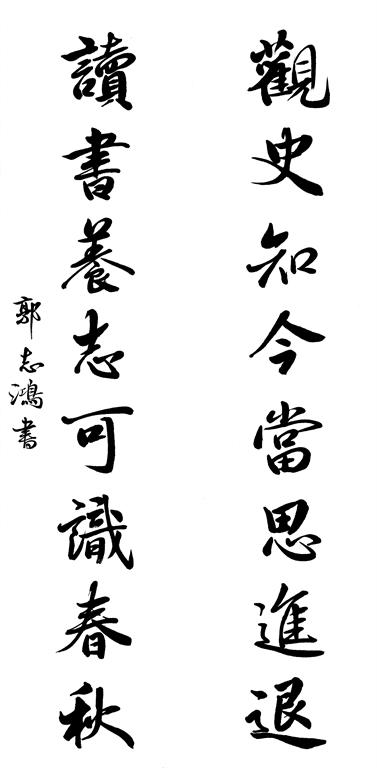 觀史知今當思進退
讀書養志可識春秋
郭志鴻書